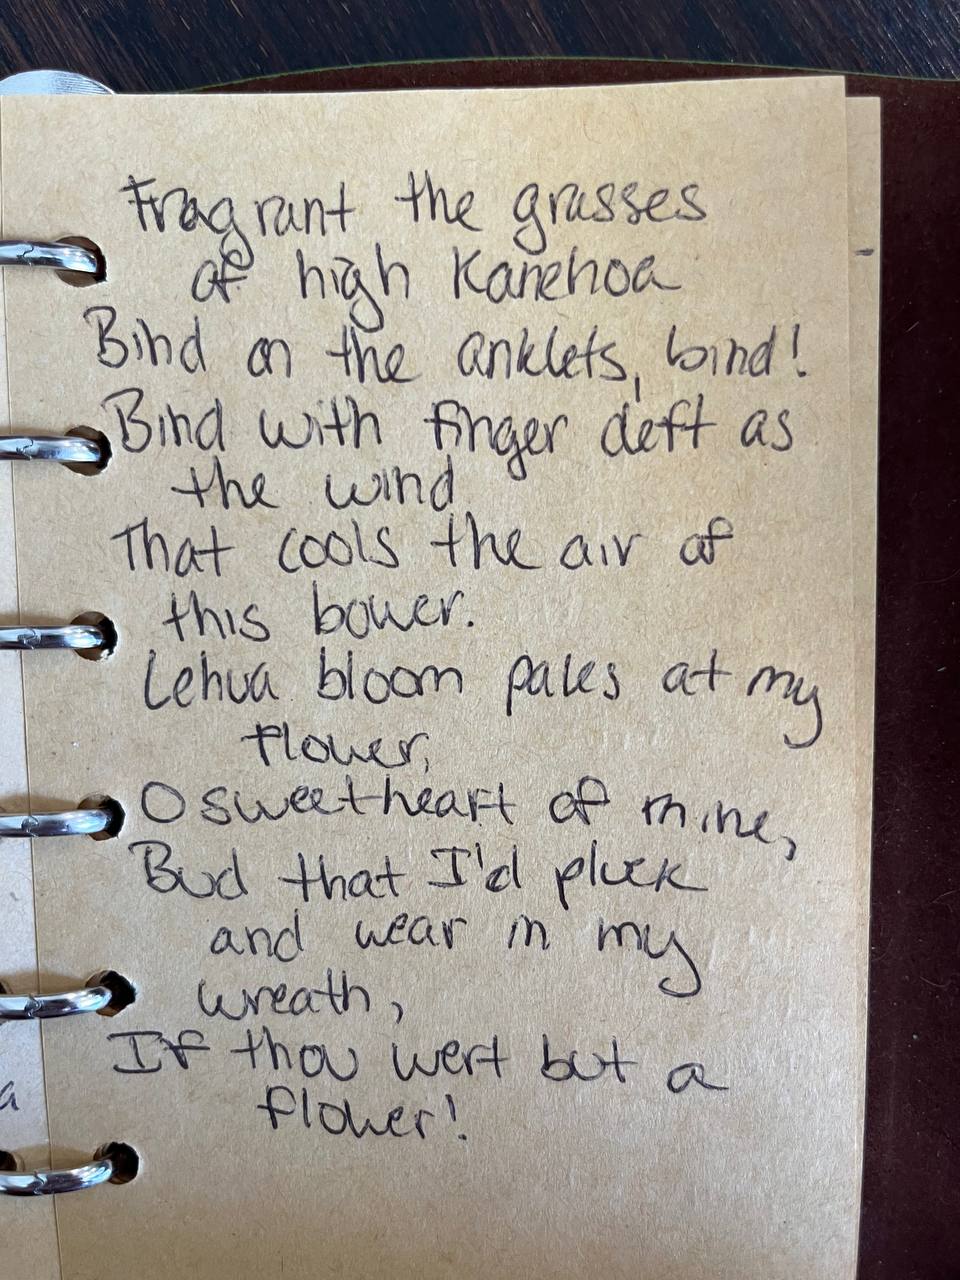 Fragrant the grasses
of high Kanehoa
Bind on the anklets, bind!
Bind with finger deft as
the wind
That cools the air of
this bower.
Lehua bloom pales at my
flower,
O sweetheart of mine,
Bud that I'd pluck
and wear in my
wreath,
If thou wert but a
flower!
a